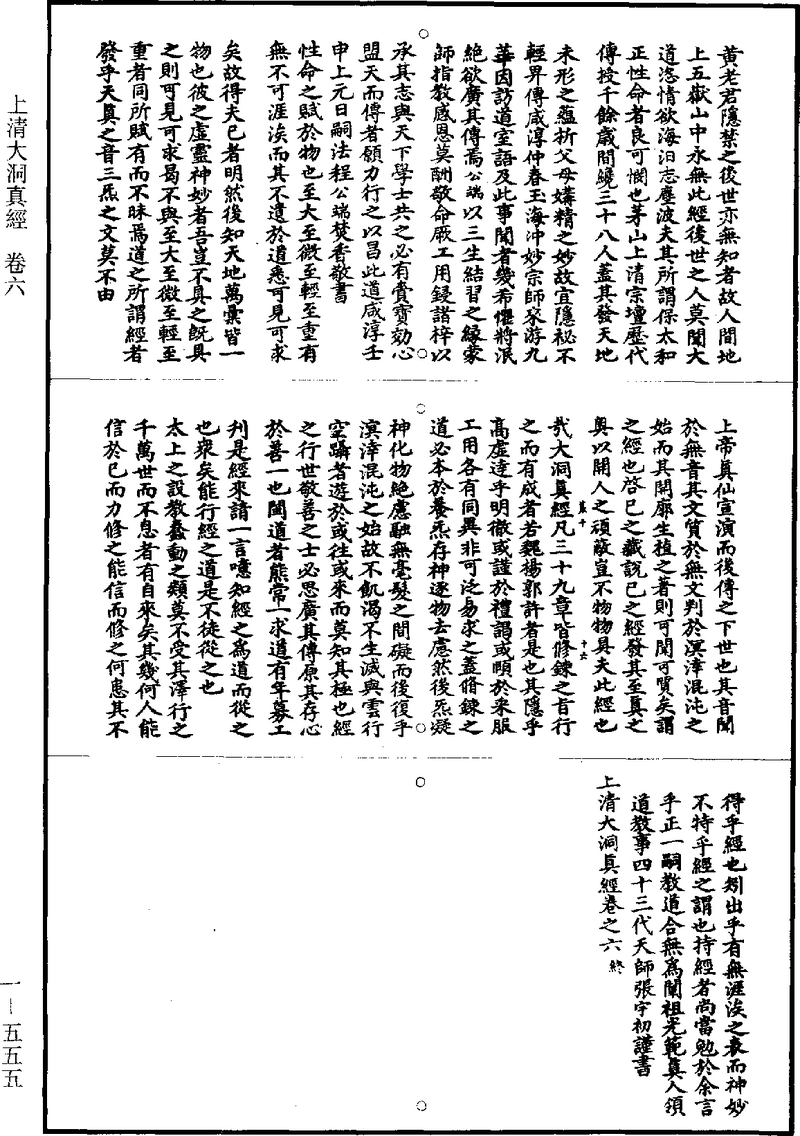 上清大洞真經　卷六
黃老君隱禁之後世亦無知者故人間地
上五嶽山中永無此經後世之人莫聞大
道恣情欲海汩志塵波夫其所謂保太和
正性命者良可憫也茅山上清宗壇歷代
傳授千餘歲間纔三十八人蓋其發天地
未形之蘊折父母媾精之妙故宜隱祕不
輕畀傳咸淳仲春玉海沖妙宗師來游九
華因訪道室語及此事聞者幾希懼將泯
絕欲廣其傳焉公端以三生結習之緣蒙
師指教感恩莫酬敬命厥工用鋟諸梓以
承其志與天下學士共之必有賫寶効心
盟天而傳者願力行之以昌此道咸淳壬
申上元日嗣法程公端焚香敬書
性命之賦於物也至大至微至輕至重有
無不可涯涘而其不遺於道悉可見可求
矣故得夫已者明然後知天地萬彙皆一
物也彼之虛靈神妙者吾豈不具之既具
之則可見可求曷不與至大至微至輕至
重者同所賦有而不昧焉道之所謂經者
發乎天真之音三炁之文莫不由
上帝真仙宣演而後傳之下世也其音聞
於無音其文質於無文判於溟涬混沌之
始而其開廓生植之著則可聞可質矣謂
之經也啓已之藏說已之經發其至真之
奧以開人之頑蔽豈不物物具夫此經也
哉大洞真經凡三十九章皆修鍊之旨行
之而有成者若魏楊郭許者是也其隱乎
高虛達乎明徹或謹於禮謁或頤於采服
工用各有同異非可泛易求之蓋脩鍊之
道必本於養炁存神逐物去慮然後炁凝
神化物絕慮融無毫髮之間礙而後復乎
溟涬混沌之始故不飢渴不生滅與雲行
空躡者遊於或往或來而莫知其極也經
之行世敬善之士必思廣其傳原其存心
於善一也閩道者熊常一求道有年募工
刋是經來請一言噫知經之為道而從之
也衆矣能行經之道是不徒從之也
太上之設教蠢動之類莫不受其澤行之
千萬世而不息者有自來矣其幾何人能
信於已而力修之能信而修之何患其不
得乎經也矧出乎有無涯涘之表而神妙
不特乎經之謂也持經者尚當勉於余言
乎正一嗣教道合無為闡祖光範真人領
道教事四十三代天師張宇初謹書
上清大洞真經卷之六　終
一－五五五